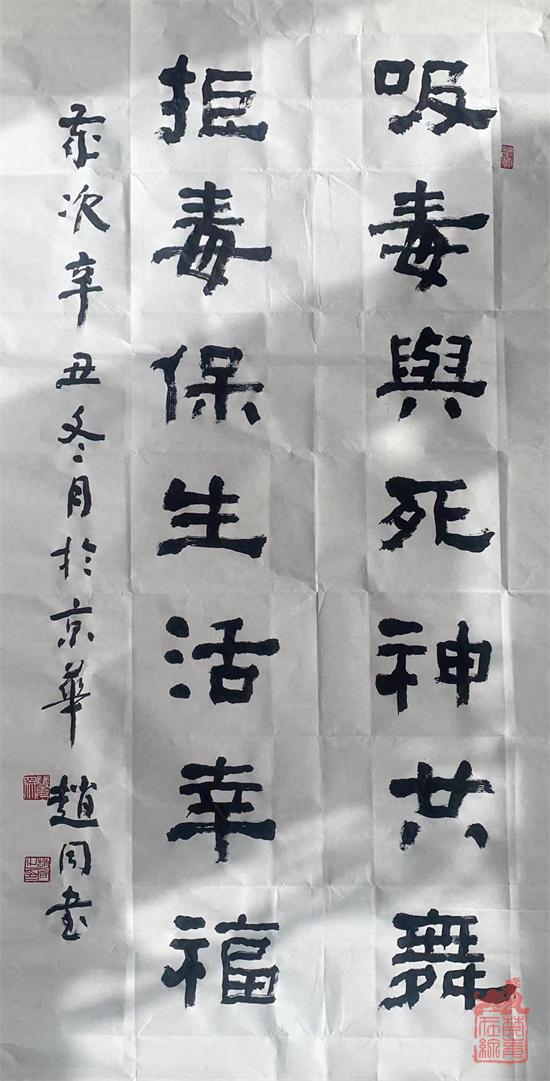 吸毒與死神共舞
拒毒保生活幸福
歲次辛丑冬月於京華 趙同書